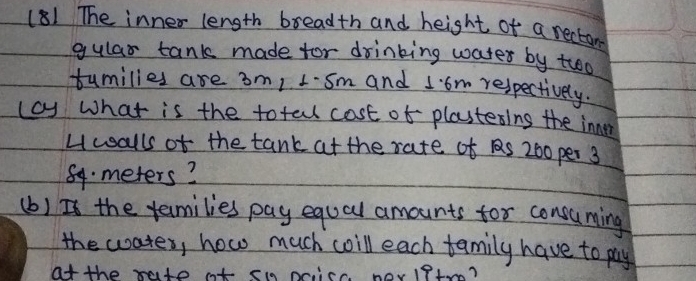 (8) The inner length breadth and height of a rectan
gular tank made for drinking water by two
families are 3m, 1.5m and 1.6m respectively.
(a) What is the total cost of plastering the inner
4 walls of the tank at the rate of Rs 200 per 3
sq. meters?
(b) If the families pay equal amounts for consuming
the water, how much will each family have to pay
at the rate of 50 paisa per litre?